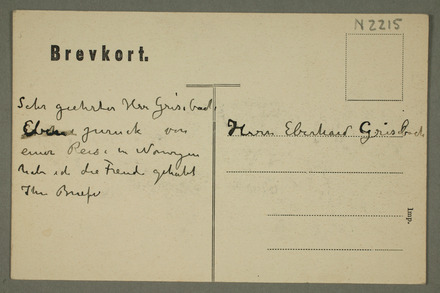 N 2215
Brevkort.
Sehr geehrter Herr Grisebach,
Eben zurück von
einer Reise in Norwegen
hab ich die Freude gehabt
Ihr Briefe
Herrn Eberhard Grisebach
Imp.